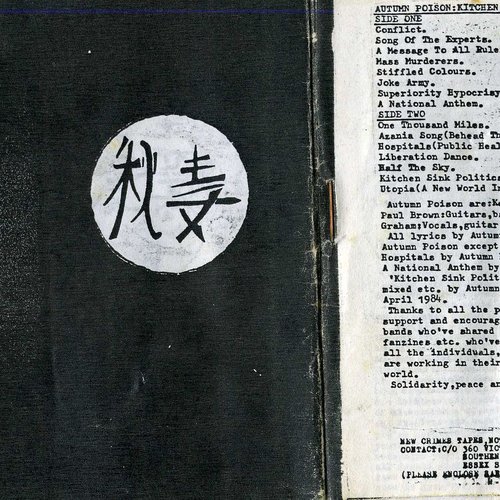 秋毒
AUTUMN POISON:KITCHEN
SIDE ONE
Conflict.
Song Of The Experts.
A Message To All Rule
Mass Murderers.
Stiffled Colours.
Joke Army.
Superiority Hypocrisy
A National Anthem.
SIDE TWO
One Thousand Miles.
Azania Song(Behead Th
Hospitals(Public Heal
Liberation Dance.
Half The Sky.
Kitchen Sink Politics
Utopia(A New World I
Autumn Poison are:K
Paul Brown:Guitars,b
Graham:Vocals,guitar
All lyrics by Autum
Autumn Poison except
Hospitals by Autumn
A National Anthem by
'Kitchen Sink Polit
mixed etc. by Autumn
April 1984.
Thanks to all the p
support and encourag
bands who've shared
fanzines etc. who've
all the individuals,
are working in their
world.
Solidarity,peace an
NEW CRIMES TAPES,NO
CONTACT:C/O 360 VIC
SOUTHEN
ESSEX S
(PLEASE ENCLOSE SAE